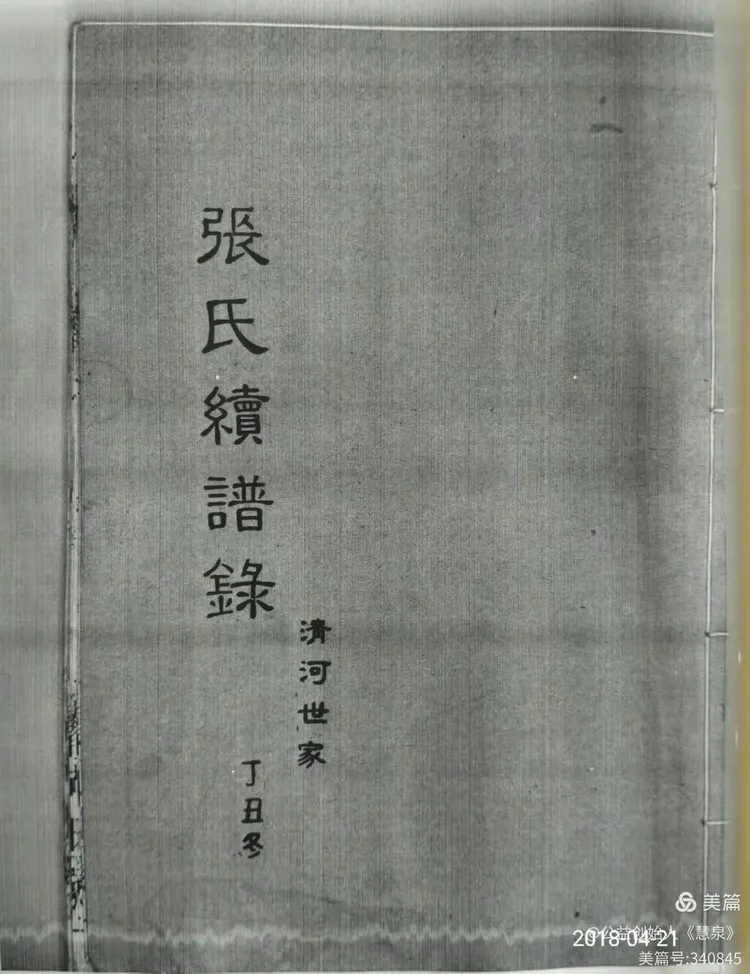 張氏續譜錄
清河世家
丁丑冬
美篇
@公益创始人《慧泉》
2018-04-21
美篇号:340845